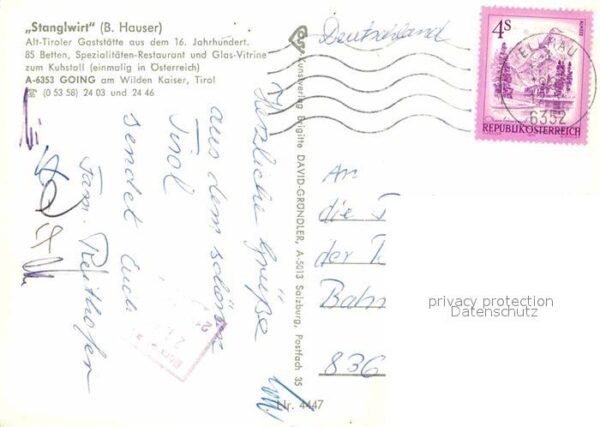 „Stanglwirt" (B. Hauser)
Alt-Tiroler Gaststätte aus dem 16. Jahrhundert.
85 Betten, Spezialitäten-Restaurant und Glas-Vitrine
zum Kuhstall (einmalig in Österreich)
A-6353 GOING am Wilden Kaiser, Tirol
☎ (0 53 58) 24 03 und 24 46
Herzliche Grüße
aus dem schönen
Tirol
sendet Euch
Fam. Reithofer
Kunstverlag Brigitte DAVID-GRÜNDLER, A-5013 Salzburg, Postfach 35
Nr. 4447
Deutschland
4S
REPUBLIK ÖSTERREICH
ELLMAU
6352
An
die
der
Bahn
836
privacy protection
Datenschutz